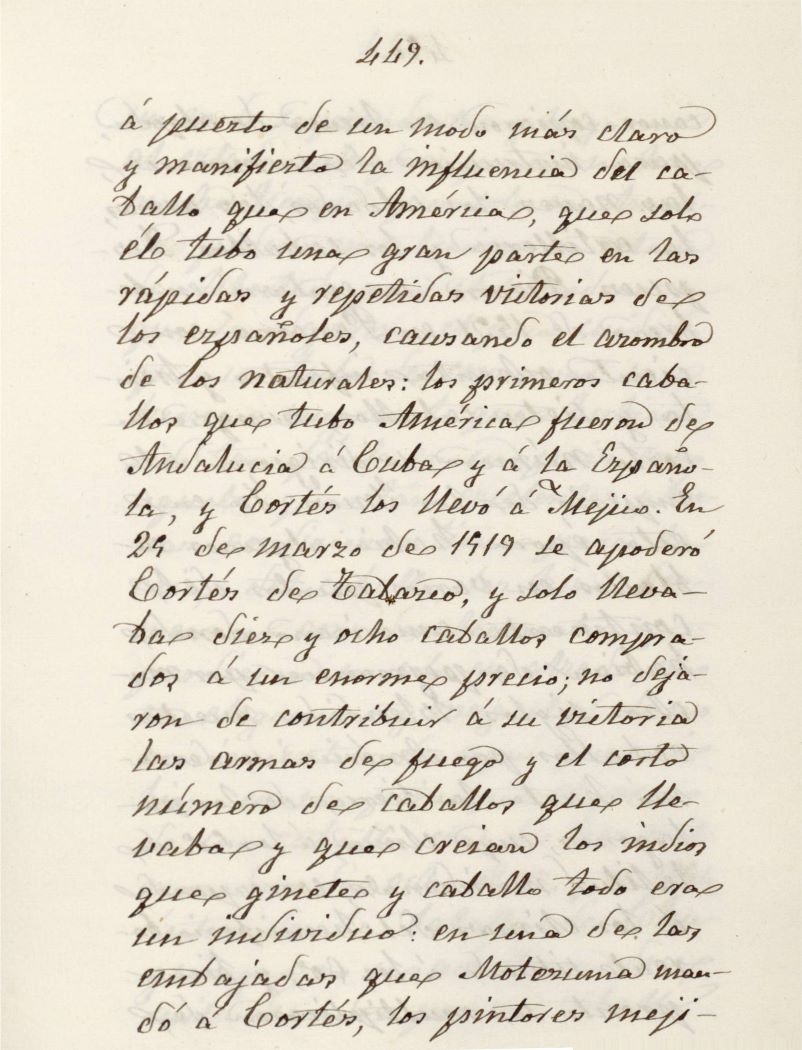 449.
á puesto de un modo más claro
y manifiesto la influencia del ca-
ballo que en América, que solo
él tubo una gran parte en las
rápidas y repetidas victorias de
los españoles, causando el asombro
de los naturales: los primeros caba-
llos que tubo América fueron de
Andalucia á Cuba y á la Españo-
la, y Cortés los llevó á Mejico. En
25 de marzo de 1519 se apoderó
Cortés de Tabasco, y solo lleva-
ba diez y ocho caballos compra-
dos á un enorme precio; no deja-
ron de contribuir á su victoria
las armas de fuego y el corto
número de caballos que lle-
vaba y que creian los indios
que ginete y caballo todo era
un individuo: en una de las
embajadas que Motezuma man-
dó á Cortés, los pintores meji-